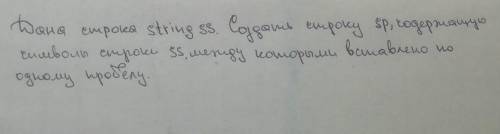 Дана строка string ss. Создать строку sp, содержащую
символы строки ss, между которыми вставлено по
одному пробелу.